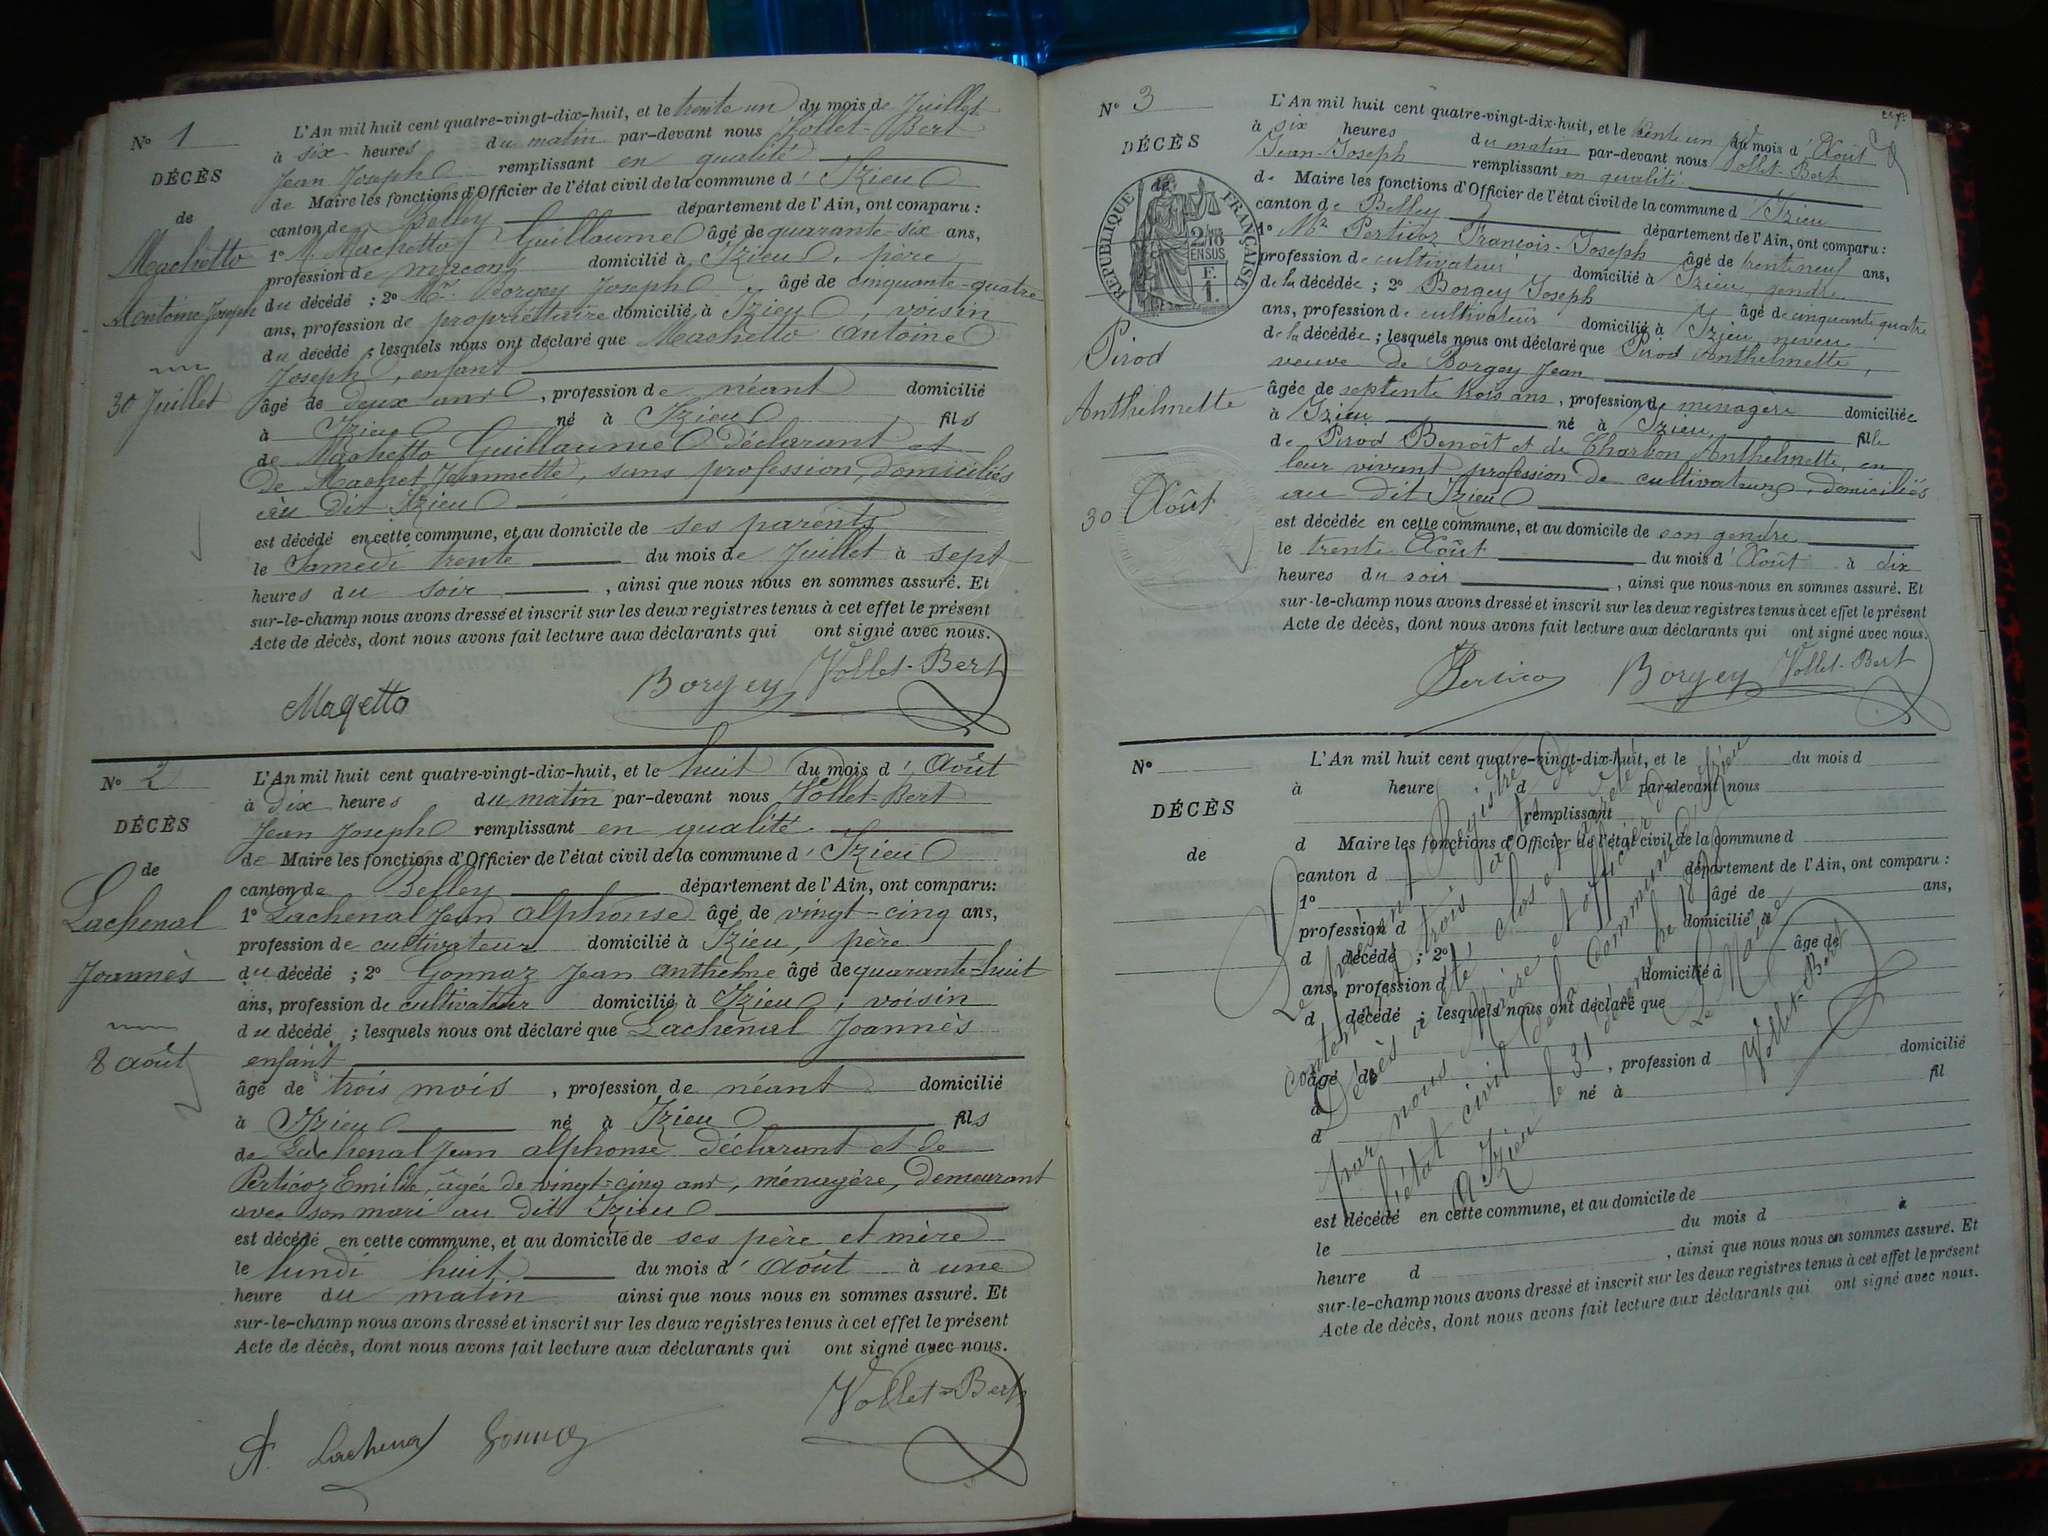 N° 1
DÉCÈS
de
Machetto
Antoine Joseph
30 Juillet
L'An mil huit cent quatre-vingt-dix-huit, et le trente un du mois de Juillet
à six heures du matin par-devant nous Vollet-Bert
Jean Joseph remplissant en qualité
de Maire les fonctions d'Officier de l'état civil de la commune d' Izieu
canton de Belley département de l'Ain, ont comparu :
1° M. Machetto Guillaume âgé de quarante-six ans,
profession de maçon domicilié à Izieu, père
du décédé ; 2° Mr. Borgey Joseph âgé de cinquante-quatre
ans, profession de propriétaire domicilié à Izieu, voisin
du décédé ; lesquels nous ont déclaré que Machetto Antoine
Joseph, enfant
âgé de deux ans, profession de néant domicilié
à Izieu né à Izieu fils
de Machetto Guillaume déclarant et
de Machet Jeannette, sans profession, domiciliés
au dit Izieu
est décédé en cette commune, et au domicile de ses parents
le Samedi trente du mois de Juillet à sept
heures du soir, ainsi que nous nous en sommes assuré. Et
sur-le-champ nous avons dressé et inscrit sur les deux registres tenus à cet effet le présent
Acte de décès, dont nous avons fait lecture aux déclarants qui ont signé avec nous.
Magetto Borgey Vollet-Bert
N° 2
DÉCÈS
de
Lachenal
Joannès
8 août
L'An mil huit cent quatre-vingt-dix-huit, et le huit du mois d' Août
à dix heures du matin par-devant nous Vollet-Bert
Jean Joseph remplissant en qualité
de Maire les fonctions d'Officier de l'état civil de la commune d' Izieu
canton de Belley département de l'Ain, ont comparu :
1° Lachenal Jean alphonse âgé de vingt-cinq ans,
profession de cultivateur domicilié à Izieu, père
du décédé ; 2° Gonnaz Jean anthelme âgé de quarante-huit
ans, profession de cultivateur domicilié à Izieu, voisin
du décédé ; lesquels nous ont déclaré que Lachenal Joannès
enfant
âgé de trois mois, profession de néant domicilié
à Izieu né à Izieu fils
de Lachenal Jean alphonse déclarant et de
Perticoz Emilie, âgée de vingt-cinq ans, ménagère, demeurant
avec son mari au dit Izieu
est décédé en cette commune, et au domicile de ses père et mère
le lundi huit du mois d' Août à une
heure du matin ainsi que nous nous en sommes assuré. Et
sur-le-champ nous avons dressé et inscrit sur les deux registres tenus à cet effet le présent
Acte de décès, dont nous avons fait lecture aux déclarants qui ont signé avec nous.
Vollet-Bert
A. Lachenal Gonnaz
N° 3
DÉCÈS
de
RÉPUBLIQUE FRANÇAISE
2/10 EN SUS
Pirod
Anthelmette
30 Août
L'An mil huit cent quatre-vingt-dix-huit, et le trente un du mois d' Août
à six heures du matin par-devant nous Vollet-Bert
Jean-Joseph remplissant en qualité
de Maire les fonctions d'Officier de l'état civil de la commune d Izieu
canton de Belley département de l'Ain, ont comparu :
1° Mr Perticoz François-Joseph âgé de trente neuf ans,
profession de cultivateur domicilié à Izieu, gendre
de la décédée ; 2° Borgey Joseph âgé de cinquante quatre
ans, profession de cultivateur domicilié à Izieu, neveu
de la décédée ; lesquels nous ont déclaré que Pirod Anthelmette,
veuve de Borgey Jean
âgée de septente trois ans, profession de ménagère domiciliée
à Izieu né à Izieu fille
de Pirod Benoît et de Charbon Anthelmette, en
leur vivant profession de cultivateurs, domiciliés
au dit Izieu
est décédée en cette commune, et au domicile de son gendre
le trente Août du mois d' Août à dix
heures du soir, ainsi que nous nous en sommes assuré. Et
sur-le-champ nous avons dressé et inscrit sur les deux registres tenus à cet effet le présent
Acte de décès, dont nous avons fait lecture aux déclarants qui ont signé avec nous.
Perticoz Borgey Vollet-Bert
N°
DÉCÈS
de
L'An mil huit cent quatre-vingt-dix-huit, et le du mois d
à heure d par-devant nous
remplissant
d Maire les fonctions d'Officier de l'état civil de la commune d
canton d département de l'Ain, ont comparu :
1° âgé de ans,
profession d domicilié à
d décédé ; 2° âgé de
ans, profession d domicilié à
d décédé ; lesquels nous ont déclaré que
âgé de, profession d domicilié
à né à fil
d
est décédé en cette commune, et au domicile de
le du mois d à
heure d, ainsi que nous nous en sommes assuré. Et
sur-le-champ nous avons dressé et inscrit sur les deux registres tenus à cet effet le présent
Acte de décès, dont nous avons fait lecture aux déclarants qui ont signé avec nous.
Le présent Registre
contenant trois actes de
Décès a été clos et arrêté
par nous Maire et officier de
l'état civil de la commune d'Izieu
A Izieu le 31 décembre 1898
Le Maire
Vollet-Bert